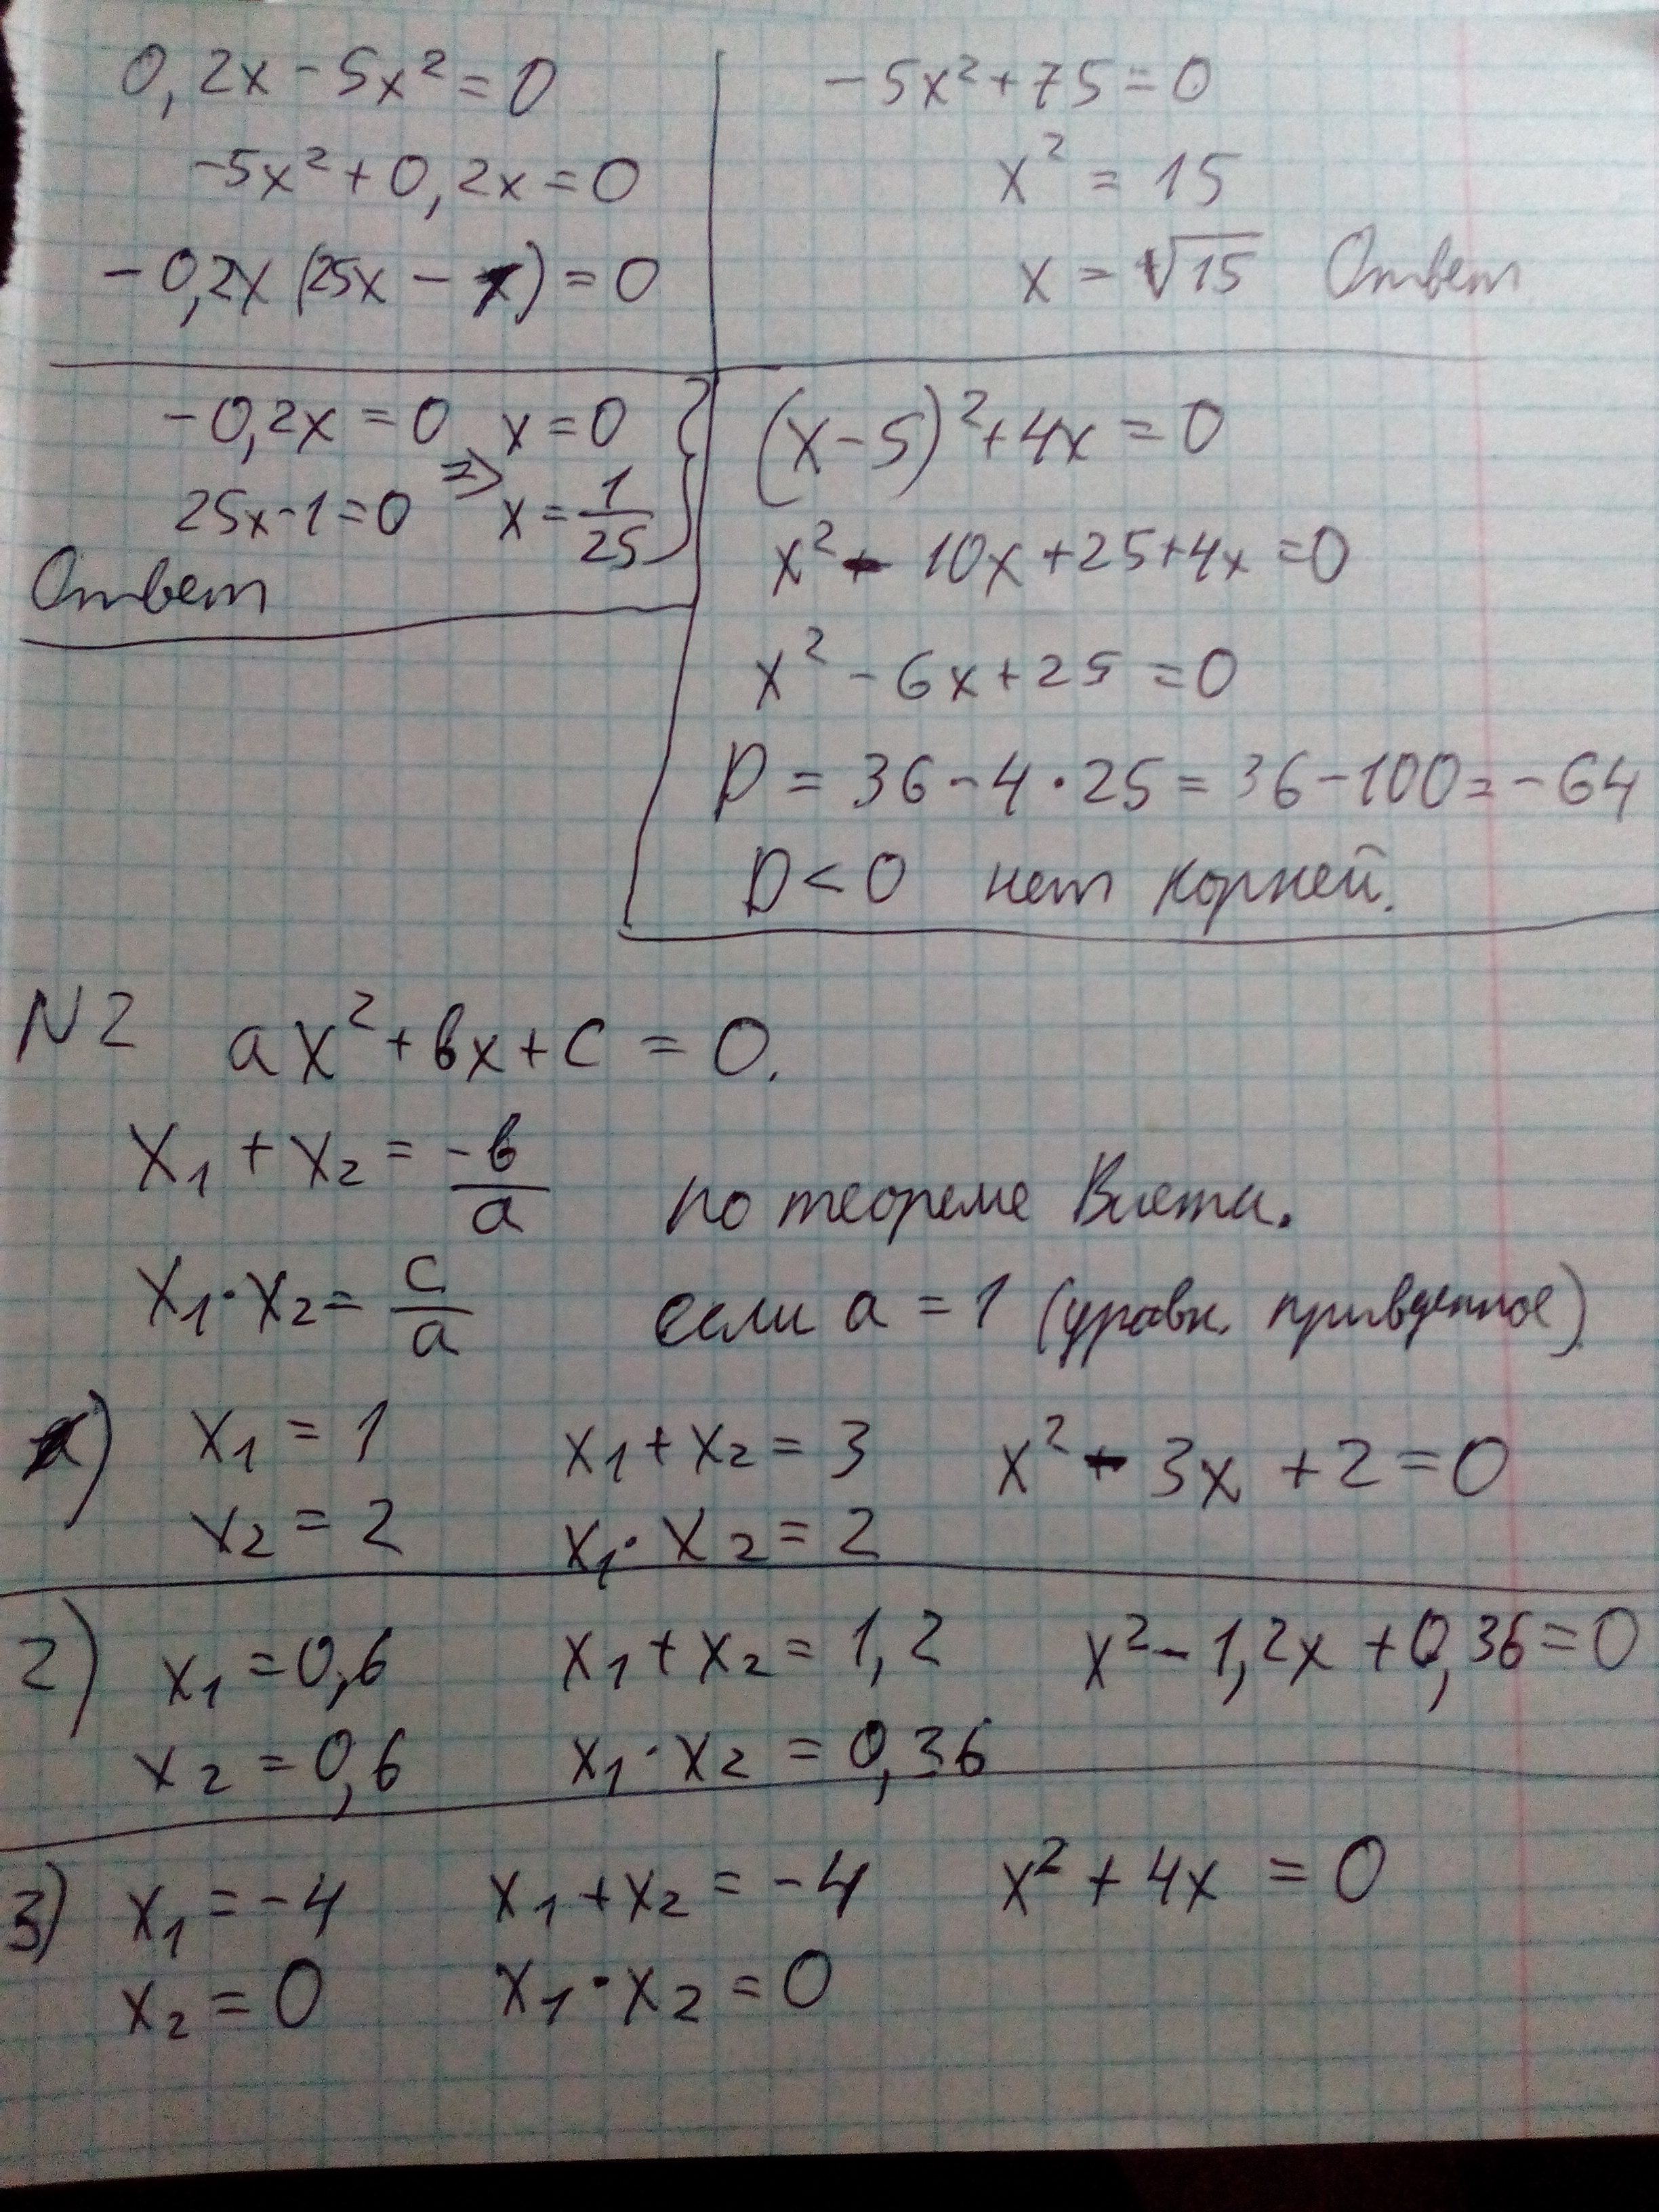 0,2x - 5x² = 0
-5x² + 0,2x = 0
-0,2x (25x - 1) = 0
-0,2x = 0 => x = 0
25x - 1 = 0 x = 1/25
Ответ
-5x² + 75 = 0
x² = 15
x = √15 Ответ
(x - 5)² + 4x = 0
x² - 10x + 25 + 4x = 0
x² - 6x + 25 = 0
D = 36 - 4 · 25 = 36 - 100 = -64
D < 0 нет корней.
N2 ax² + bx + c = 0.
x₁ + x₂ = -b/a по теореме Виета.
x₁ · x₂ = c/a если a = 1 (уравн. приведенное)
1) x₁ = 1 x₁ + x₂ = 3 x² - 3x + 2 = 0
x₂ = 2 x₁ · x₂ = 2
2) x₁ = 0,6 x₁ + x₂ = 1,2 x² - 1,2x + 0,36 = 0
x₂ = 0,6 x₁ · x₂ = 0,36
3) x₁ = -4 x₁ + x₂ = -4 x² + 4x = 0
x₂ = 0 x₁ · x₂ = 0